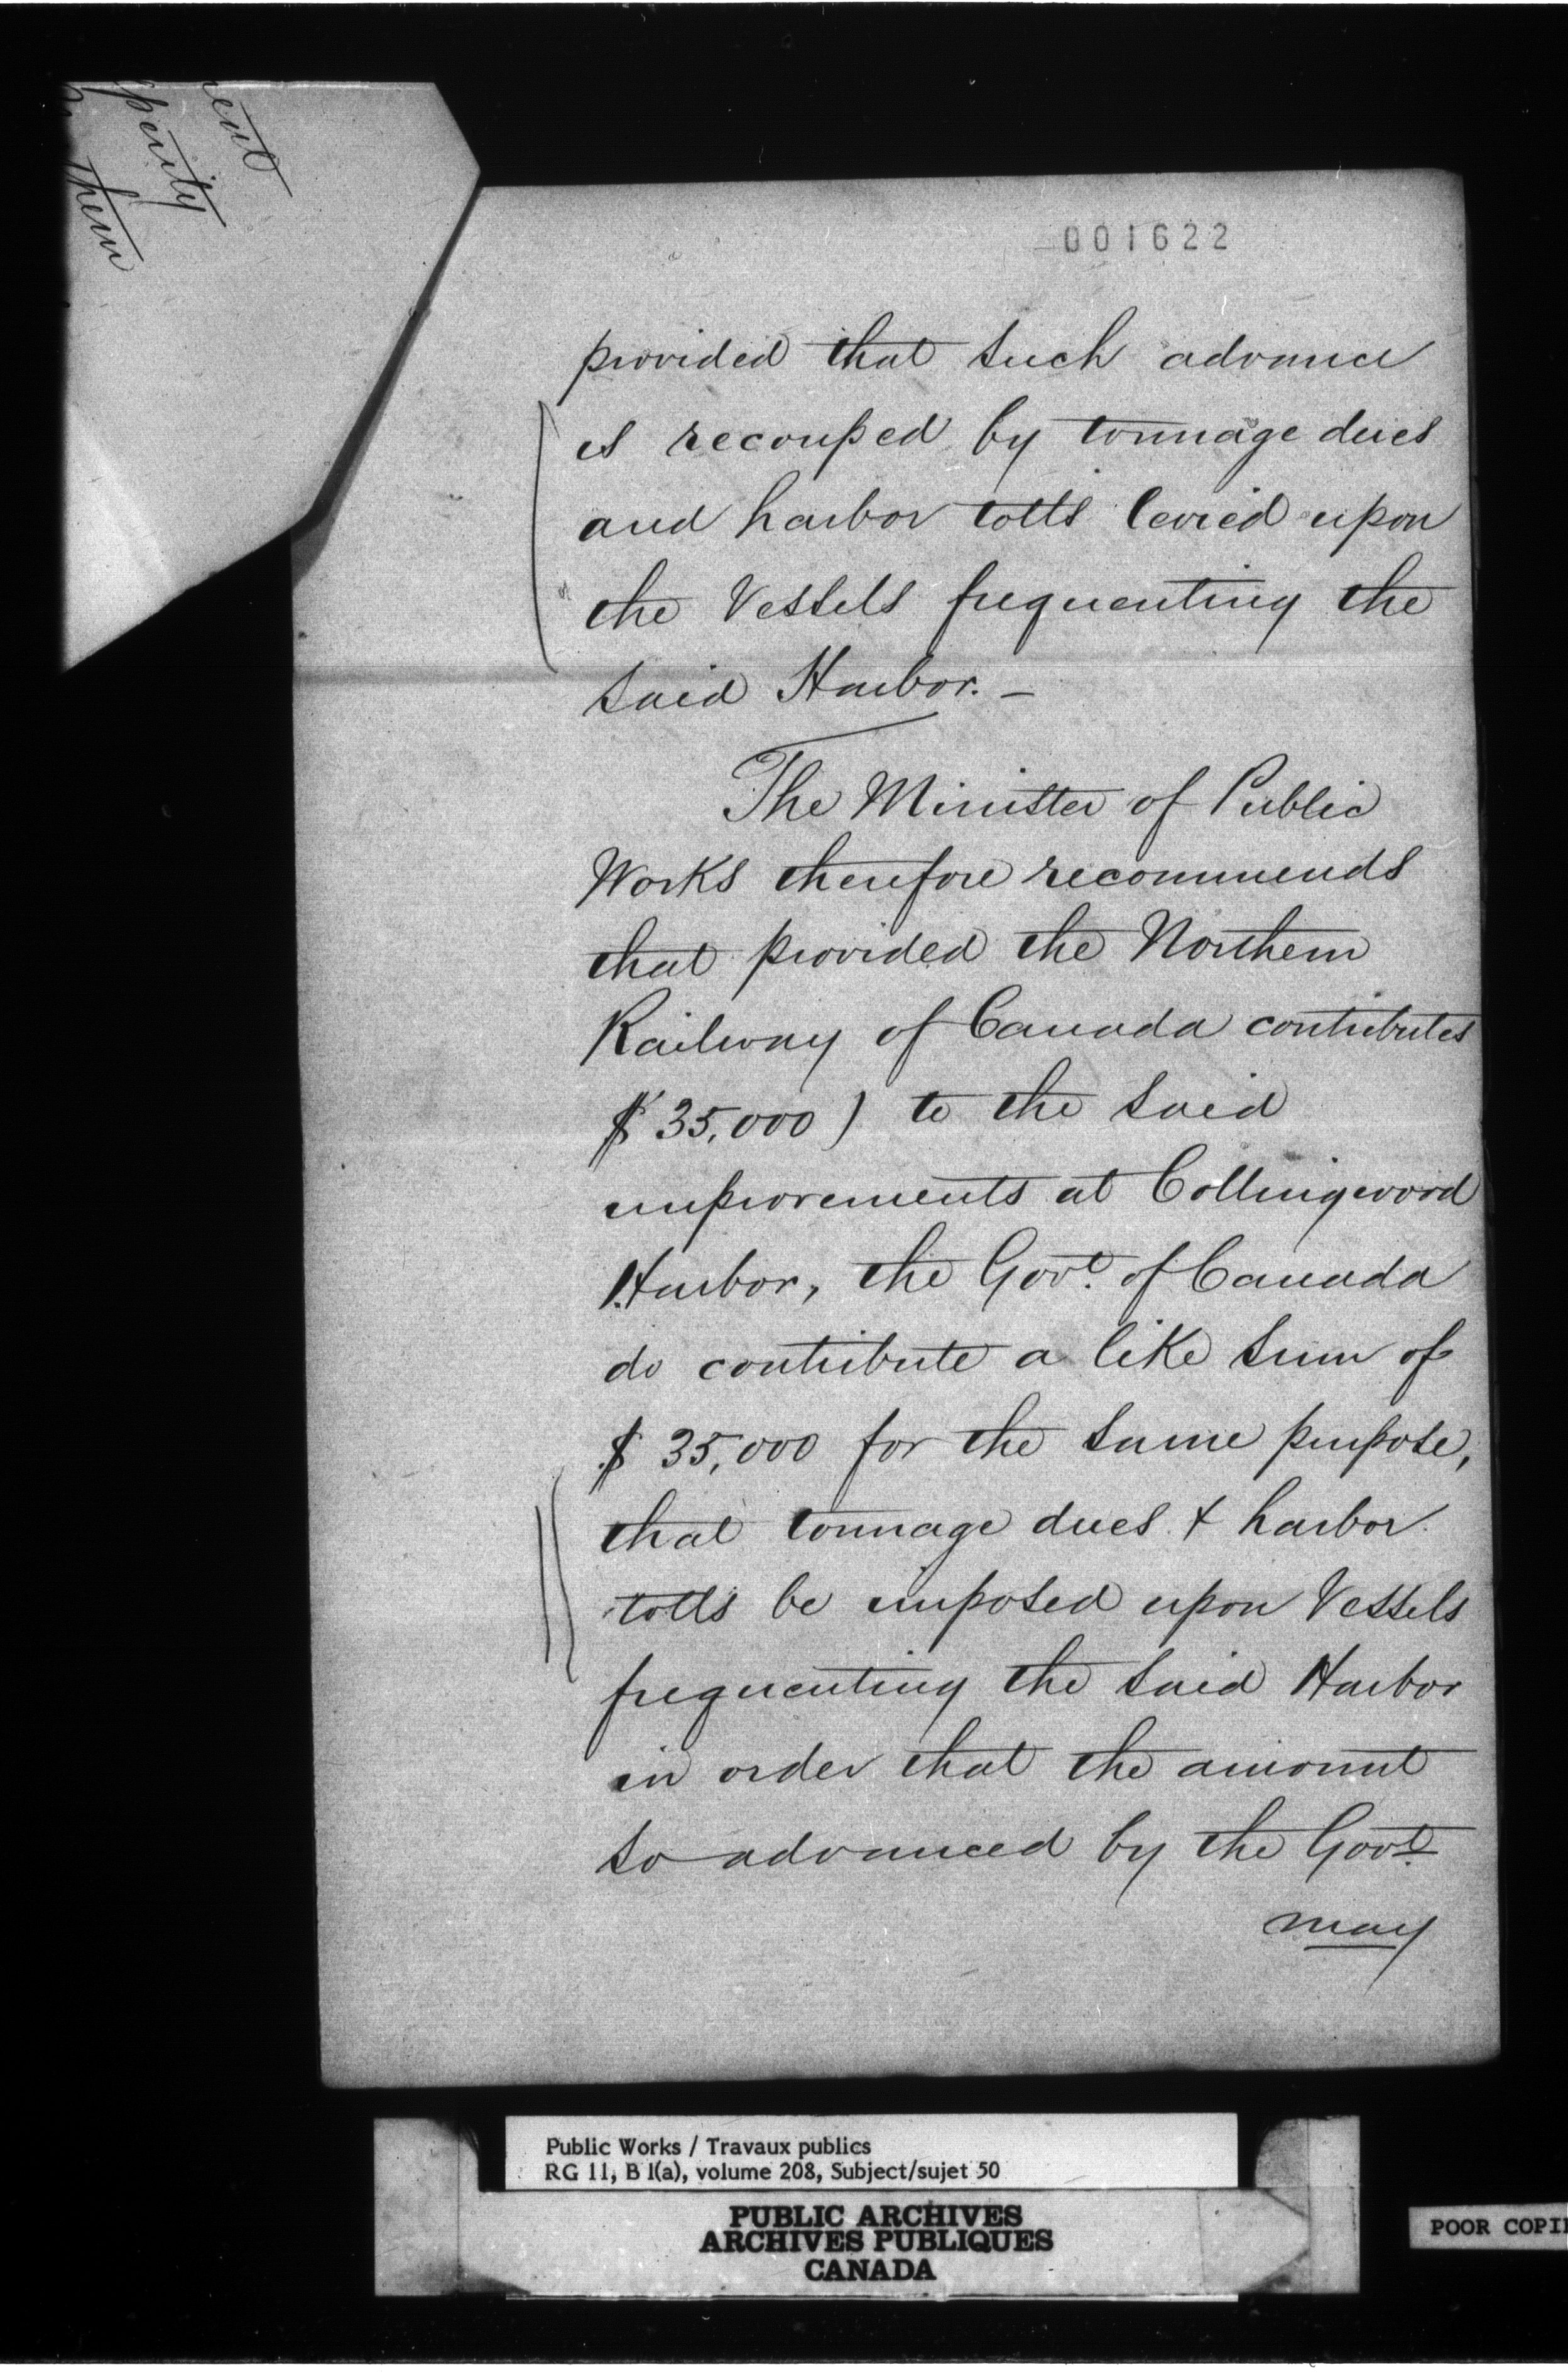 ent
perity
them
001622
provided that such advance
is recouped by tonnage dues
and harbor tolls levied upon
the Vessels frequenting the
said Harbor. –
The Minister of Public
Works therefore recommends
that provided the Northern
Railway of Canada contributes
$ 35,000 ) to the said
improvements at Collingwood
Harbor, the Govt. of Canada
do contribute a like sum of
$ 35,000 for the same purpose,
that tonnage dues & harbor
tolls be imposed upon Vessels
frequenting the said Harbor
in order that the amount
so advanced by the Govt.
may
Public Works / Travaux publics
RG 11, B 1(a), volume 208, Subject/sujet 50
PUBLIC ARCHIVES
ARCHIVES PUBLIQUES
CANADA
POOR COPI